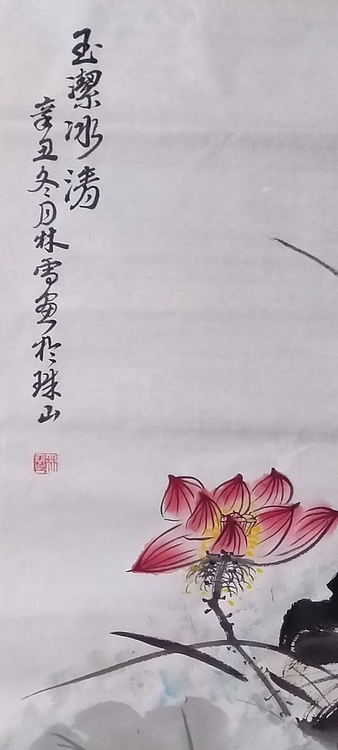 玉潔冰清
辛丑冬月林雪画於珠山
林雪